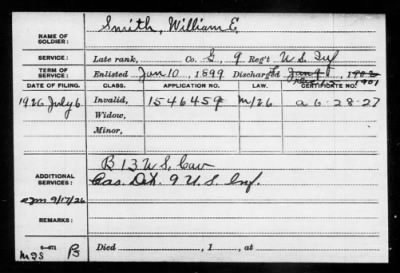 NAME OF SOLDIER: Smith, William E.
SERVICE: Late rank, Co. G, 9 Reg't U.S. Inf
TERM OF SERVICE: Enlisted Jan 10, 1899 Discharged Jan 9, 1902
1901
DATE OF FILING. CLASS. APPLICATION NO. LAW. CERTIFICATE NO.
1926 July 6 Invalid, 1546459 M/26 a 6-28-27
Widow,
Minor,
ADDITIONAL SERVICES: B 13 U.S. Cav
Cas. Det. 9 U.S. Inf.
9/17/26
REMARKS:
6-671 Died , 1 , at